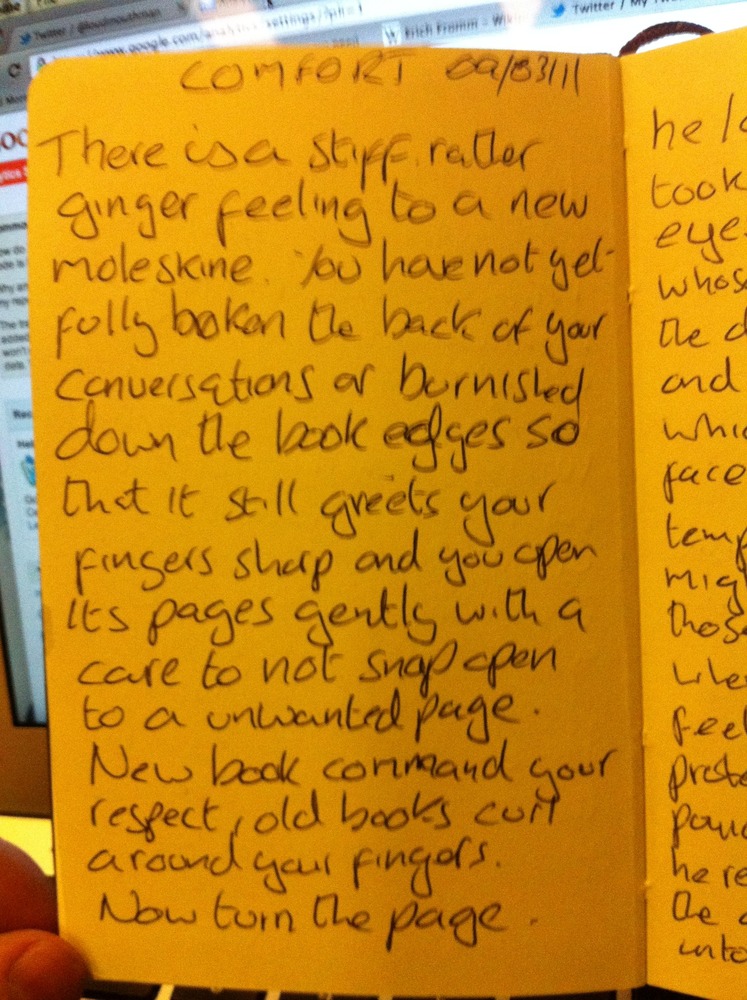 Twitter / @loudmouthman
Erich Fromm - Wiki
Twitter / My Tw
www.google.com/analytics/settings/?pli=1
COMFORT 09/03/11
There is a stiff rather
ginger feeling to a new
moleskine. You have not yet
fully boken the back of your
conversations or burnished
down the book edges so
that it still greets your
fingers sharp and you open
its pages gently with a
care to not snap open
to a unwanted page.
New book command your
respect, old books curl
around your fingers.
Now turn the page.
took
eye
the
and
face
those
he re
the
unto